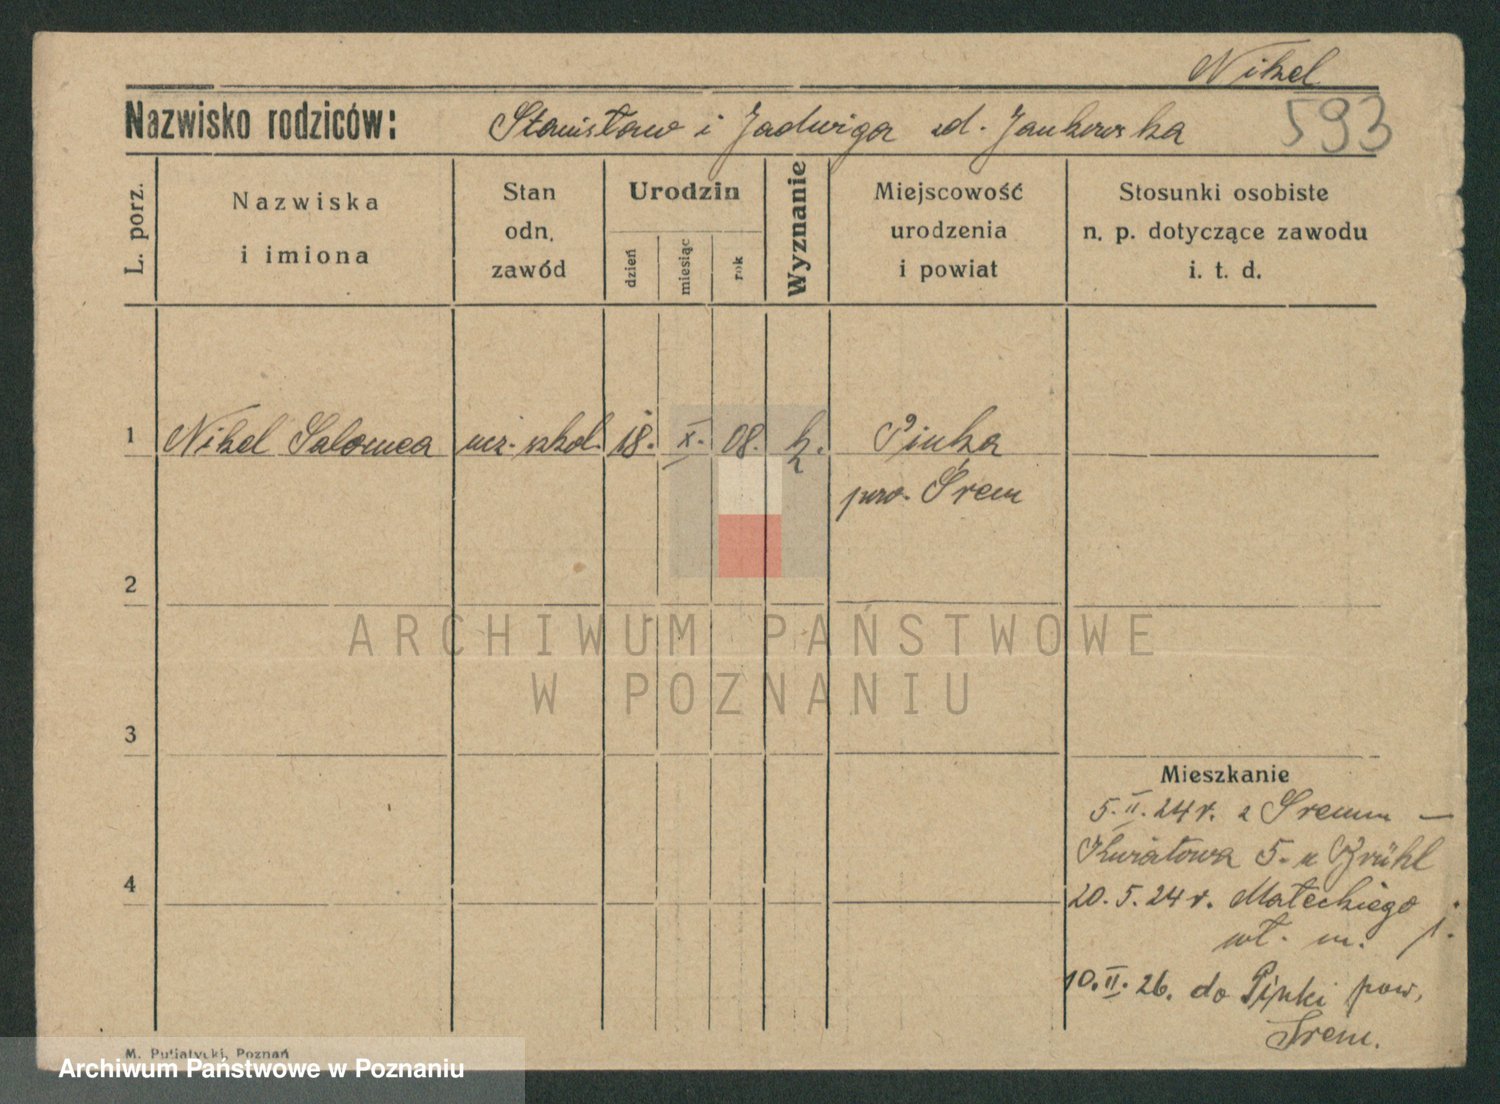 Nikel
Nazwisko rodziców: Stanisław i Jadwiga zd. Jankowska 593
L. porz.
Nazwiska
i imiona
Stan
odn.
zawód
Urodzin
dzień
miesiąc
rok
Wyznanie
Miejscowość
urodzenia
i powiat
Stosunki osobiste
n. p. dotyczące zawodu
i. t. d.
1 Nikel Salomea ucz. szkol. 18. X. 08. k. Pinka
pow. Śrem
2
ARCHIWUM PAŃSTWOWE
W POZNANIU
3
Mieszkanie
5.II.24 r. z Śremu —
Kwiatowa 5. u Brühl
4
20.5.24 r. Małeckiego
wł. m.
10.II.26. do Pinki pow.
Śrem.
M. Putiatycki, Poznań
Archiwum Państwowe w Poznaniu